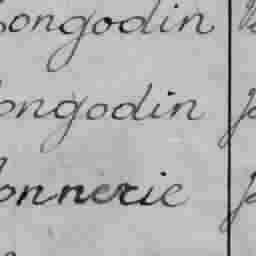 Bongodin
Bongodin
Bonnerie